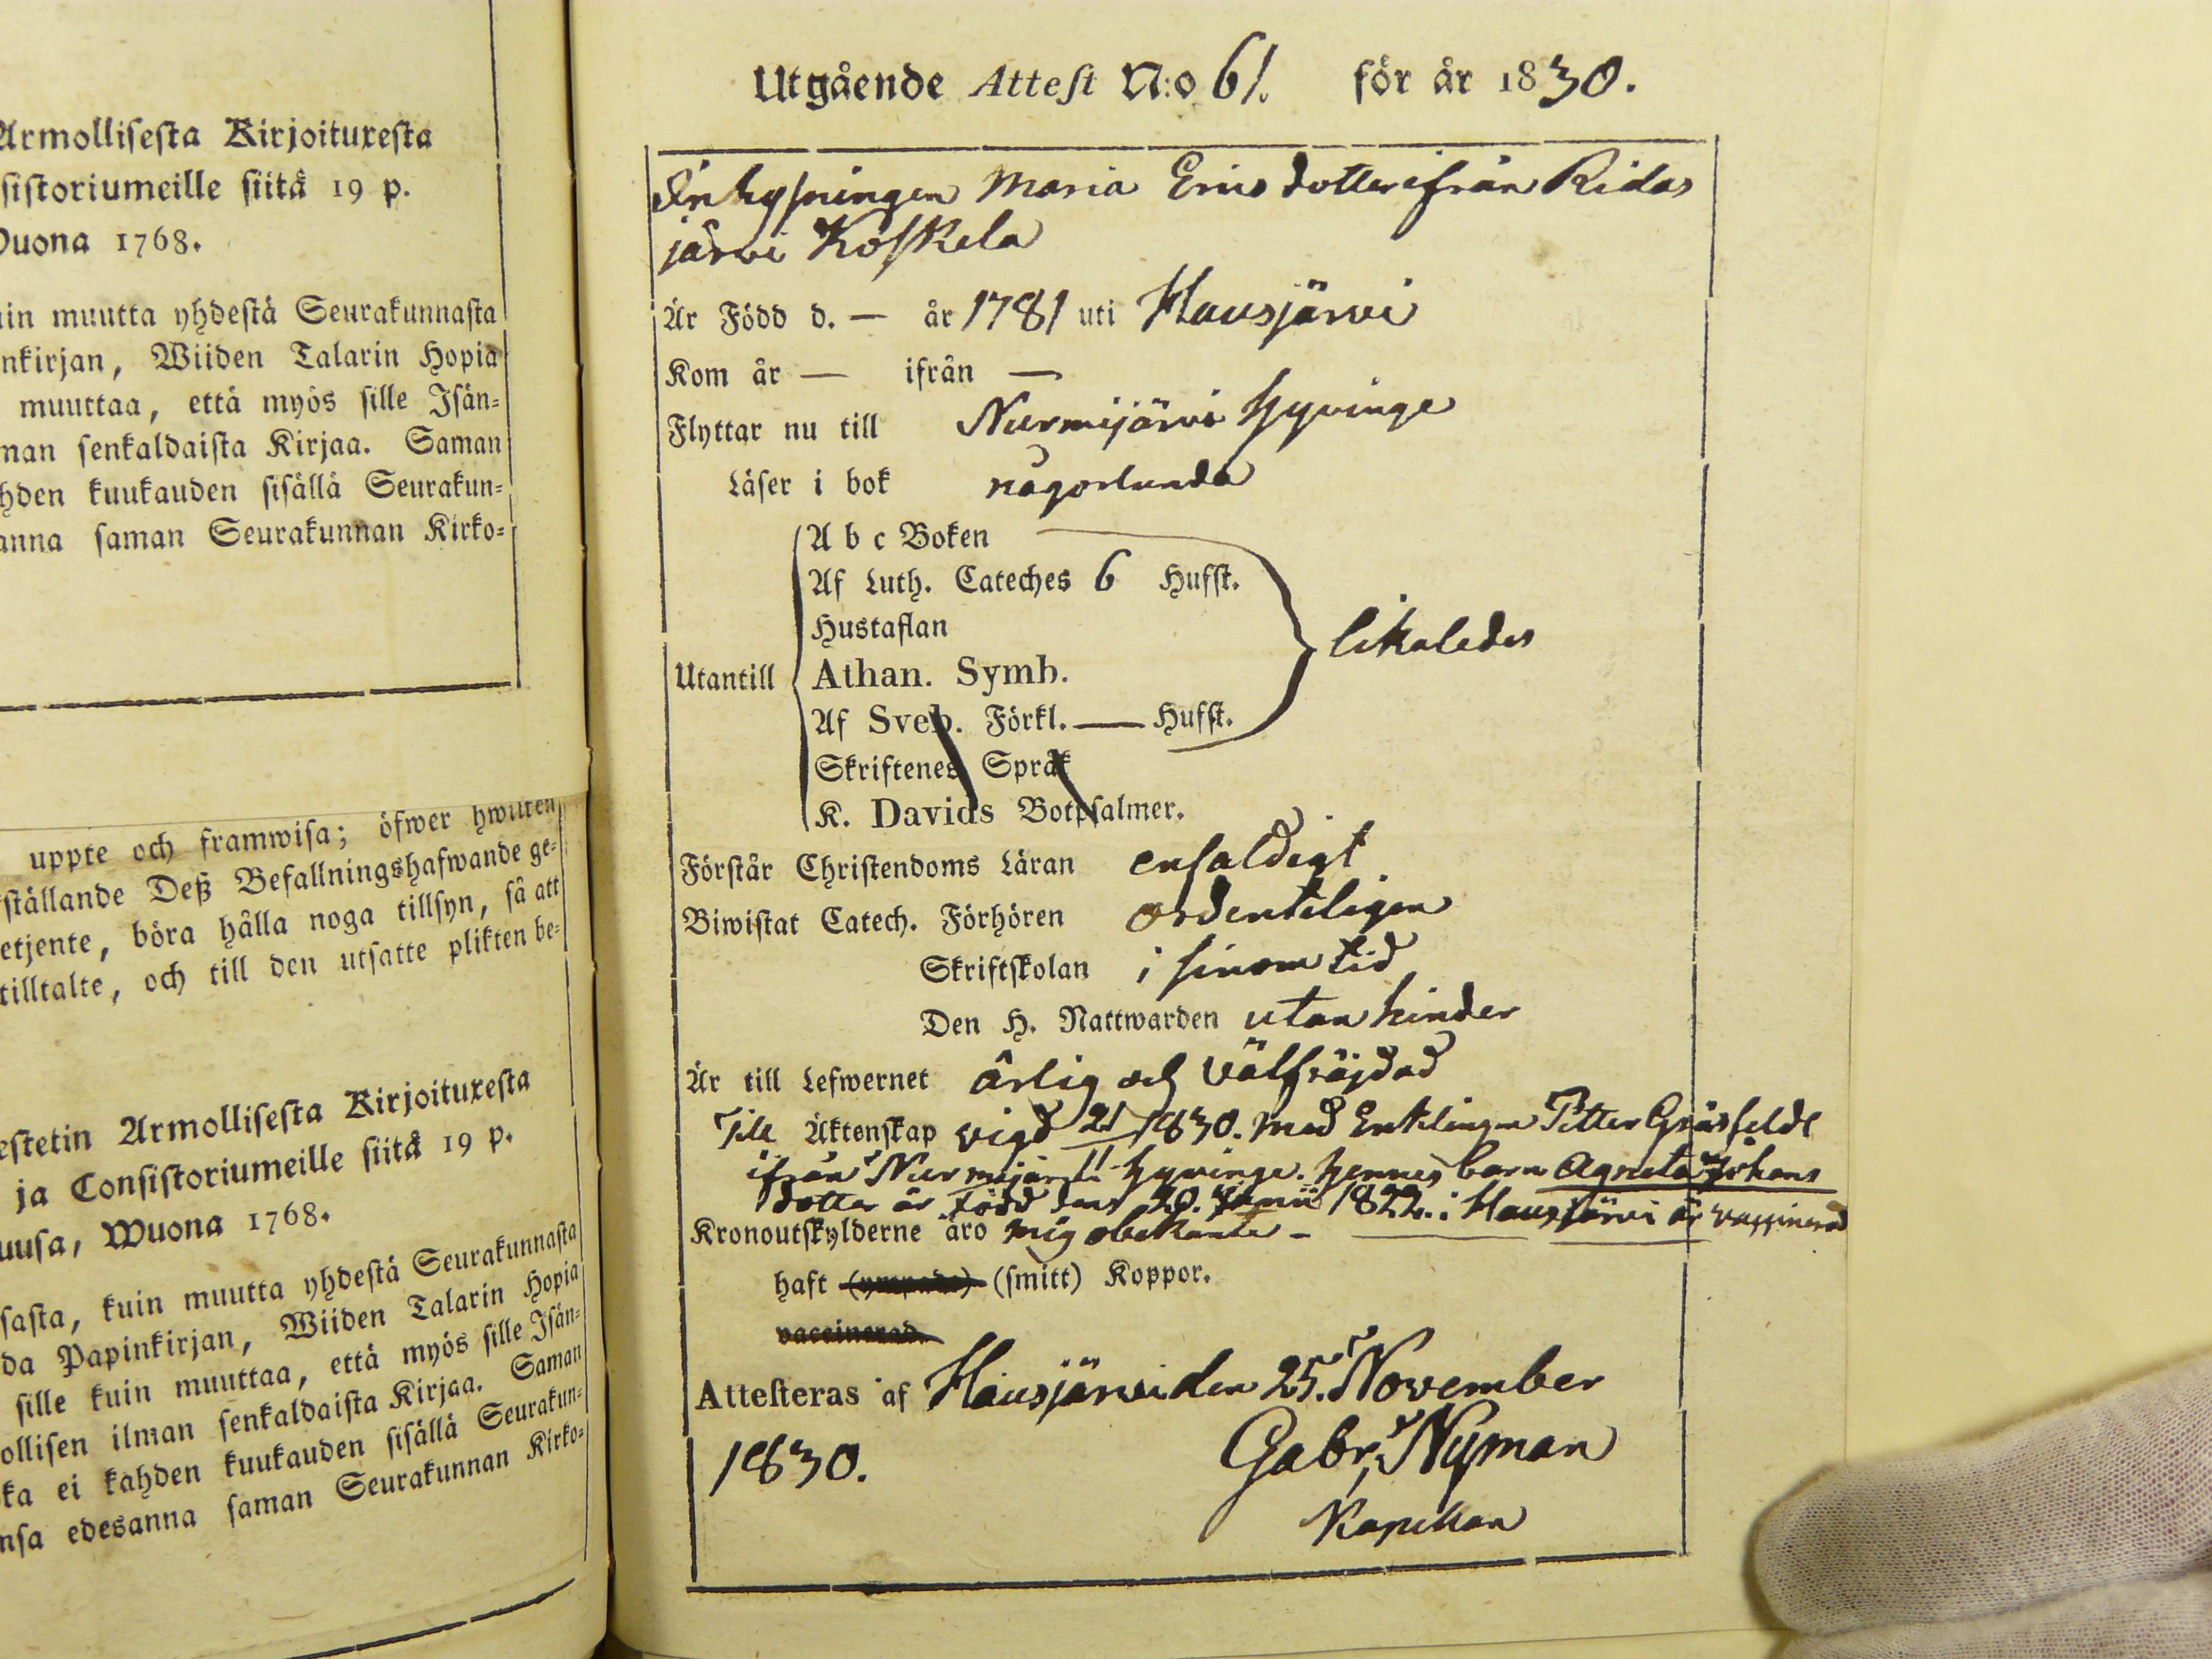 Armollisesta Kirjoituxesta
sistoriumeille siitä 19 p.
Wuona 1768.
uin muutta yhdestä Seurakunnasta
nkirjan, Wiiden Talarin Hopia
muuttaa, että myös sille Isän-
man senkaldaista Kirjaa. Saman
hden kuukauden sisällä Seurakun-
anna saman Seurakunnan Kirko-
uppte och framwisa; öfwer hwilken
ställande Deß Befallningshafwande ge-
etjente, böra hålla noga tillsyn, så att
tilltalte, och till den utsatte plikten be-
estetin Armollisesta Kirjoituxesta
ja Consistoriumeille siitä 19 p.
uusa, Wuona 1768.
sasta, kuin muutta yhdestä Seurakunnasta
da Papinkirjan, Wiiden Talarin Hopia
sille kuin muuttaa, että myös sille Isän-
ollisen ilman senkaldaista Kirjaa. Saman
ka ei kahden kuukauden sisällä Seurakun-
nsa edesanna saman Seurakunnan Kirko-
Utgående Attest N:o 61. för år 1830.
Inhysningen Maria Ericsdotter ifrån Ridas
järvi Koskela
Är Född d. — år 1781 uti Hausjärvi
Kom år — ifrån —
Flyttar nu till Nurmijärvi Hyvinge
Läser i bok någorlunda
A b c Boken
Af Luth. Cateches 6 Hufst.
Hustaflan
likaledes
Utantill Athan. Symb.
Af Sveb. Förkl. — Hufst.
Skriftenes Språk
K. Davids Botpsalmer.
Förstår Christendoms Läran enfaldigt
Biwistat Catech. Förhören ordenteligen
Skriftskolan i sinom tid
Den H. Nattwarden utan hinder
Är till Lefwernet ärlig och välfräjdad
Till Äktenskap vigd 21/11 1830. med Enklingen Petter Gräsfeldt
ifrån Nurmijärvi Hyvinge. hennes barn Agneta Johans
dotter är född den 20. Junii 1822. i Hausjärvi är vaccinerad
Kronoutskylderne äro mig obekante —
haft (ympade) (smitt) Koppor.
vaccinerad.
Attesteras af Hausjärvi den 25. November
1830. Gabr. Nyman
Kapellan